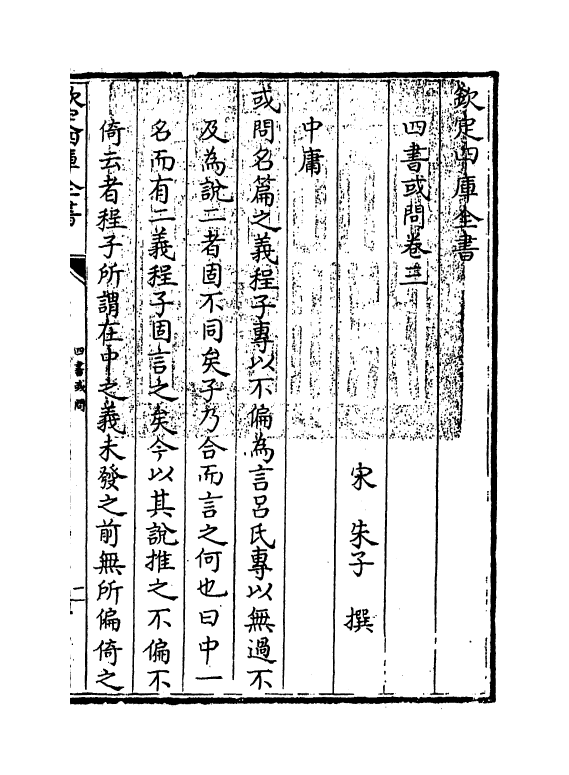 欽定四庫全書
四書或問卷三
宋 朱子 撰
中庸
或問名篇之義程子專以不偏為言呂氏專以無過不
及為說二者固不同矣子乃合而言之何也曰中一
名而有二義程子固言之矣今以其說推之不偏不
倚云者程子所謂在中之義未發之前無所偏倚之
欽定四庫全書
四書或問
一